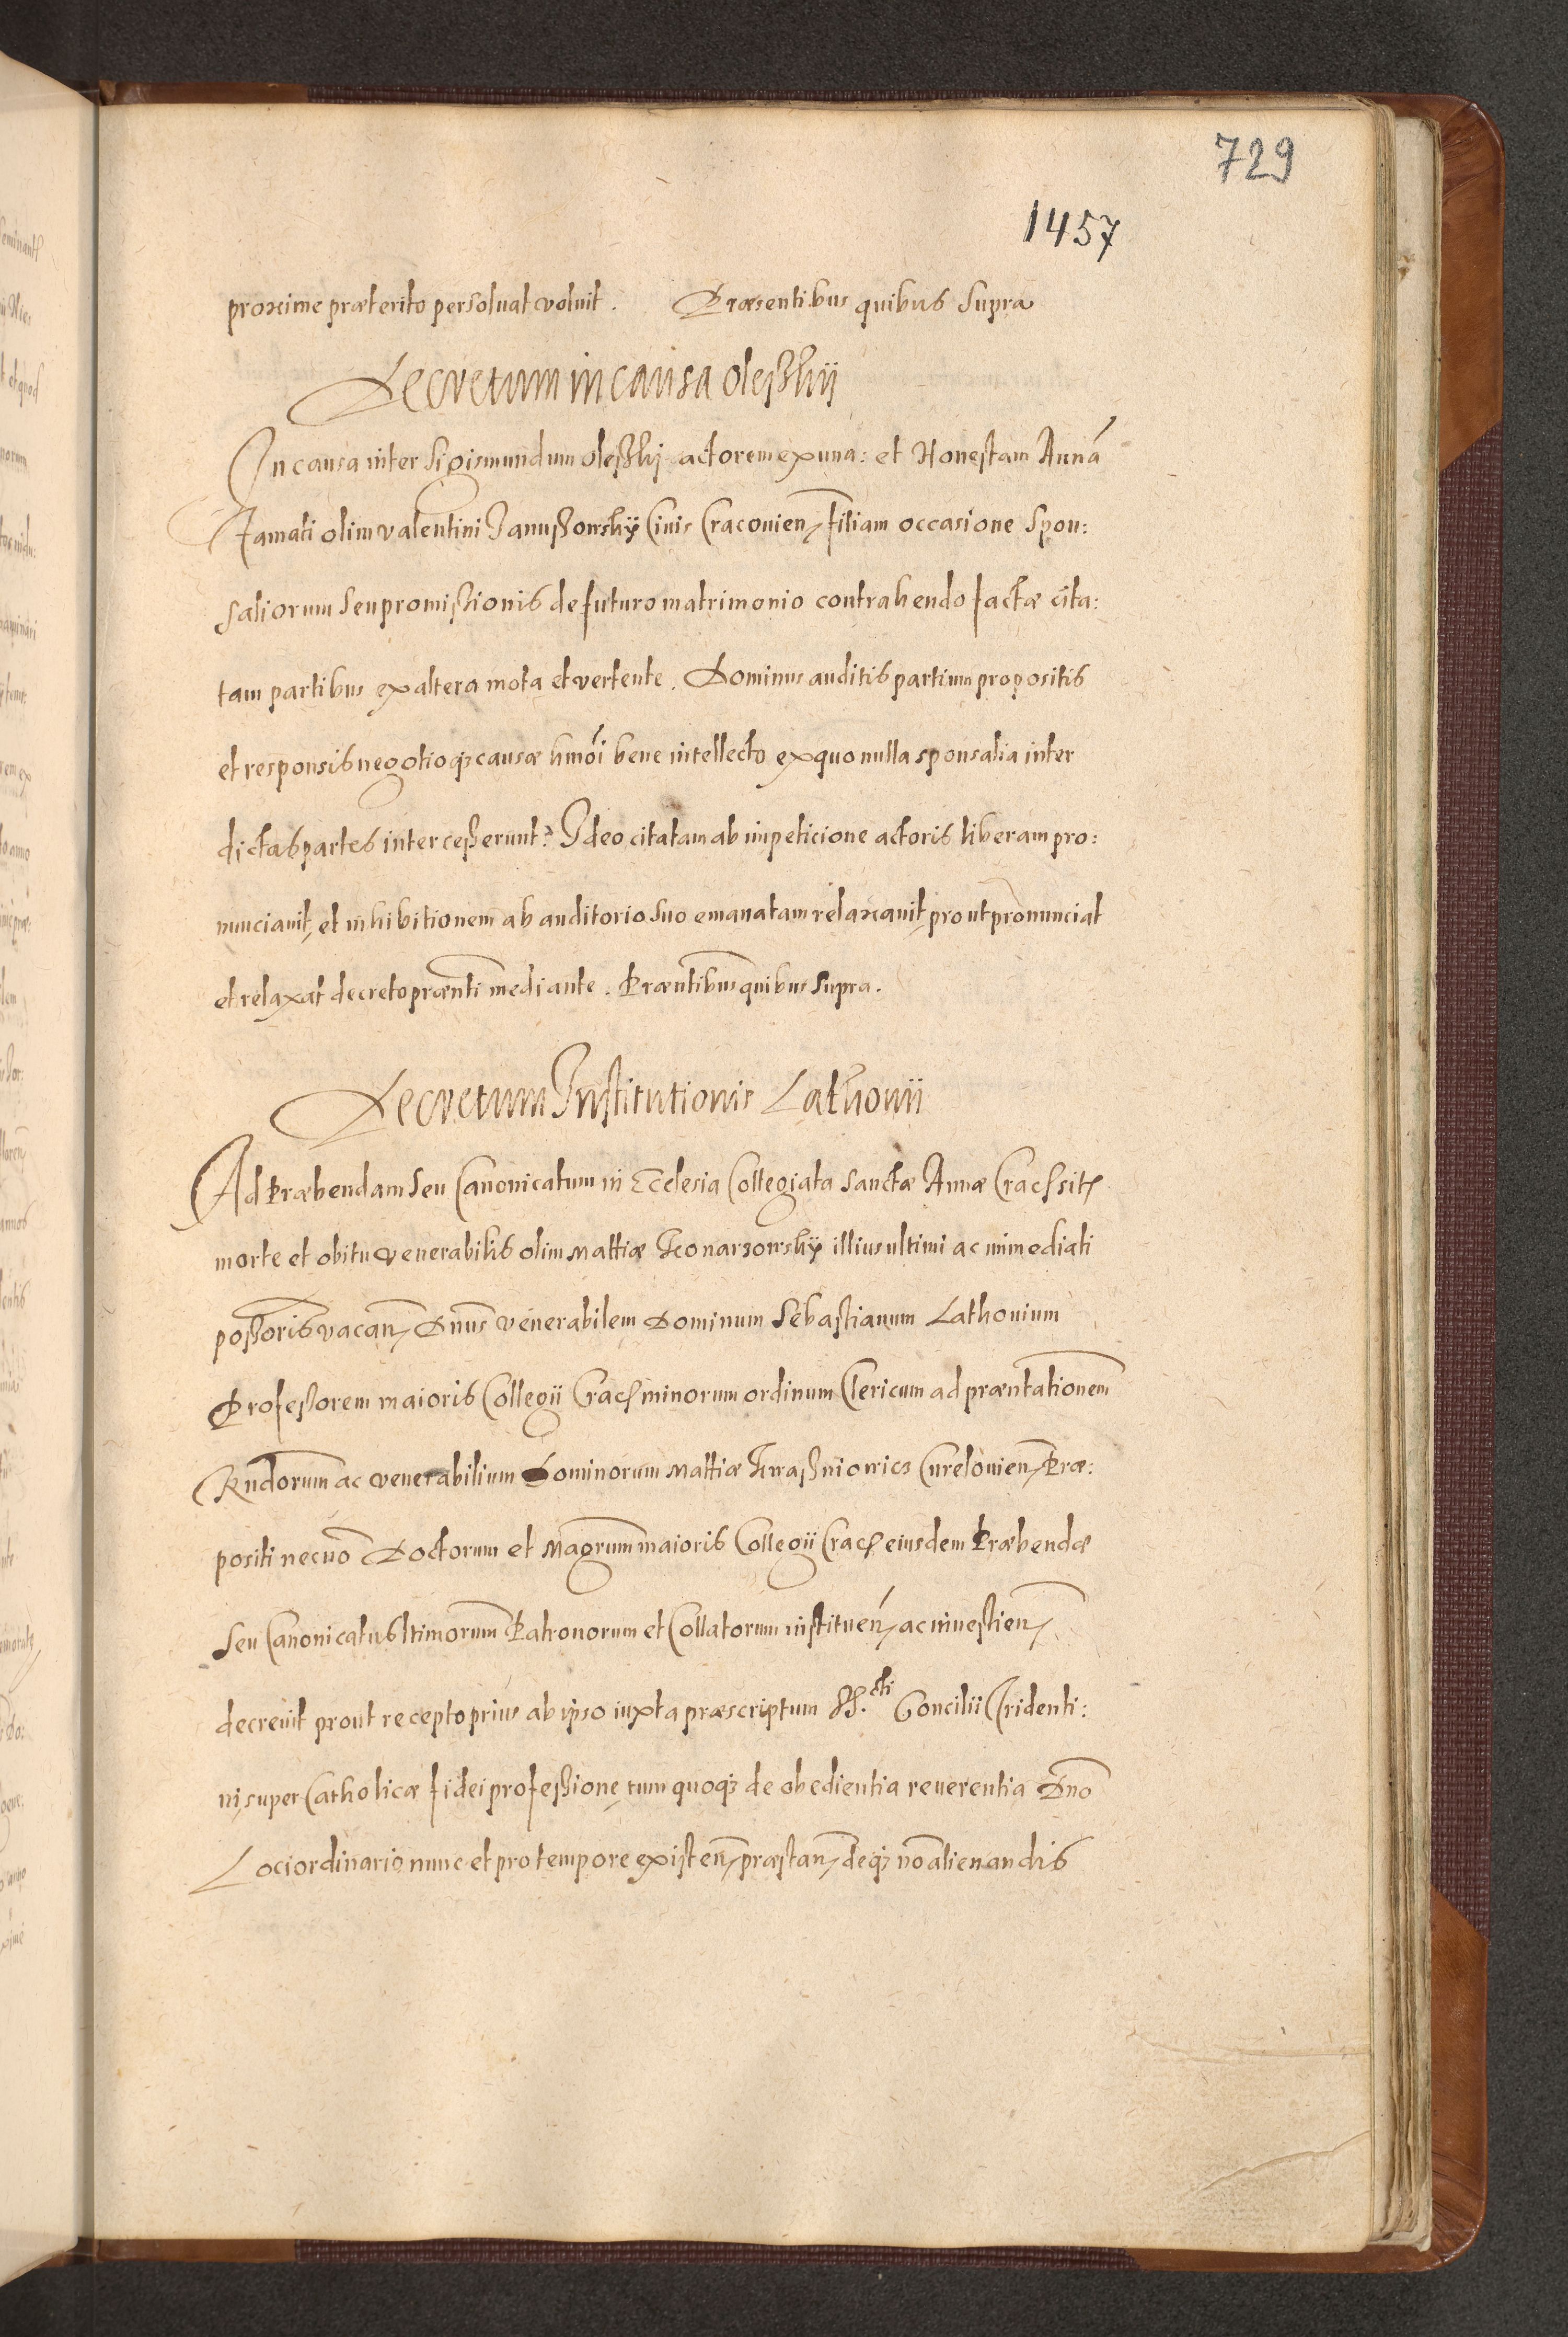 729
1457
proxime præterito persoluat voluit. Præsentibus quibus supra
Decretum in causa Oleßkij
In causa inter Sigismundum Oleßkij actorem ex una: et Honestam Annã
Famati olim Valentini Janußowskÿ Ciuis Cracouien̄ filiam occasione spon:
saliorum seu promißionis de futuro matrimonio contrahendo factæ cita:
tam partibus ex altera mota et vertente. Dominus auditis partium propositis
et responsis negotioq3 causæ hmõi bene intellecto ex quo nulla sponsalia inter
dictas partes interceßerunt? Ideo citatam ab impeticione actoris liberam pro:
nunciauit, et inhibitionem ab auditorio suo emanatam relaxauit, prout pronunciat
et relaxat decreto præn̄ti mediante. Præn̄tibus quibus supra.
Decretum Institutionis Lathonii
Ad Præbendam seu Canonicatum in Ecclesia Collegiata Sanctæ Annæ Crac̄ sit̄
morte et obitu venerabilis olim Mattiæ Leonarzowskÿ illius ultimi ac immediati
poßoris vacan̄ Dn̄us venerabilem Dominum Sebastianum Lathonium
Profeßorem maioris Collegii Crac̄ minorum ordinum Clericum ad præn̄tationem
Rn̄dorum ac venerabilium Dominorum Mattiæ Kraßniowicz Curelouien̄ Præ:
positi necno̅ Doctorum et Magr̄um maioris Collegii Crac̄ eiusdem Præbendæ
seu Canonicatus ltimorum Patronorum et Collatorum instituen̄ ac inuestien̄
decreuit prout recepto prius ab ipso iuxta præscriptum SS.cti Concilii Tridenti:
ni super Catholicæ fidei profeßione, tum quoq3 de obedientia reuerentia Dn̄o
Loci ordinario nunc et pro tempore existen̄ præstan̄ deq3 no̅ alienandis